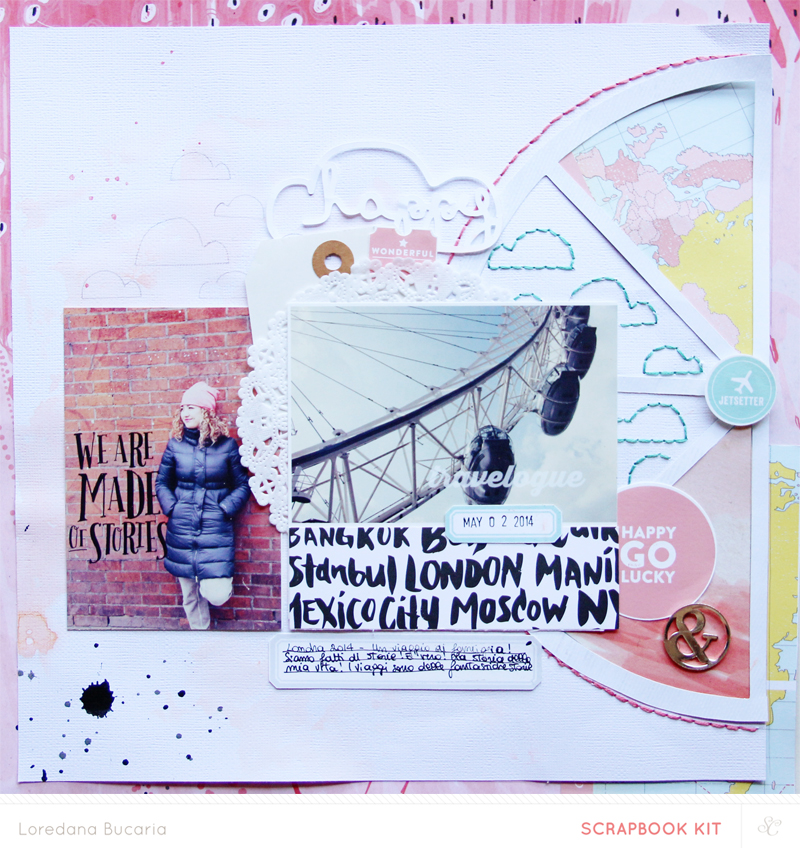 happy
WONDERFUL
JETSETTER
WE ARE
MADE
OF STORIES
travelogue
MAY 02 2014
BANGKUK
Istanbul LONDON MANIL
MEXICO City MOSCOW NY
HAPPY
GO
LUCKY
&
Londra 2014 - Un viaggio di famiglia!
Siamo fatti di storie! E' vero! la storia della
mia vita! I viaggi sono delle fantastiche storie
Loredana Bucaria
SCRAPBOOK KIT
SC